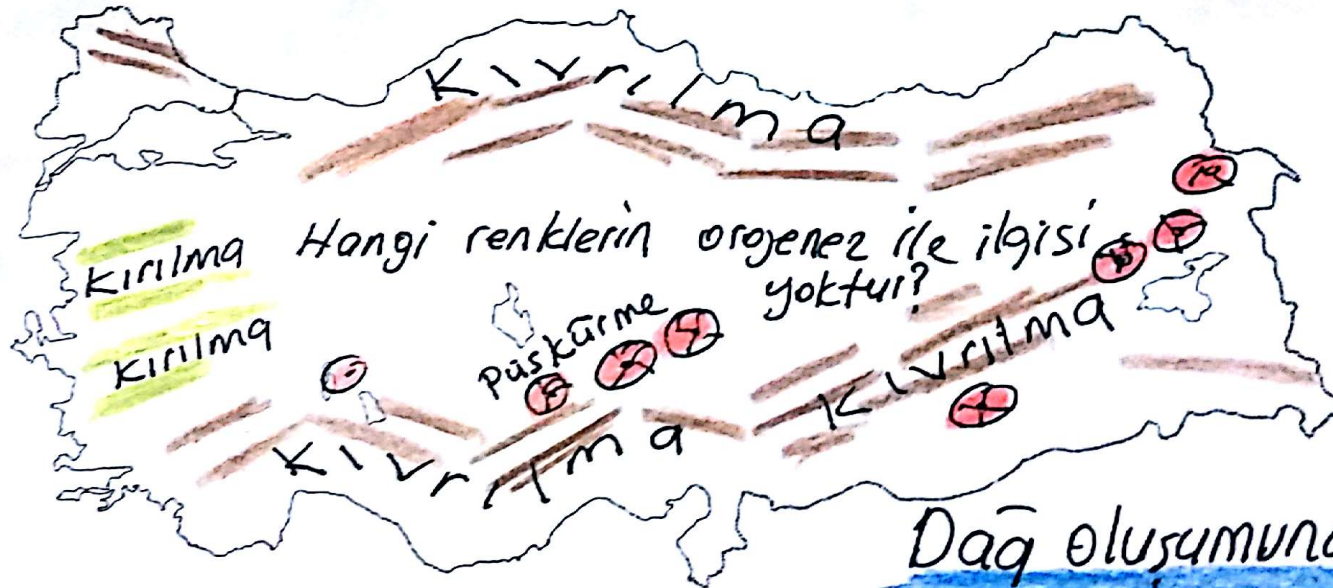 Kıvrılma
Hangi renklerin orojenez ile ilgisi
yoktur?
Kırılma
Kırılma
Püskürme
Kıvrılma
Kıvrılma
Dağ oluşumuna